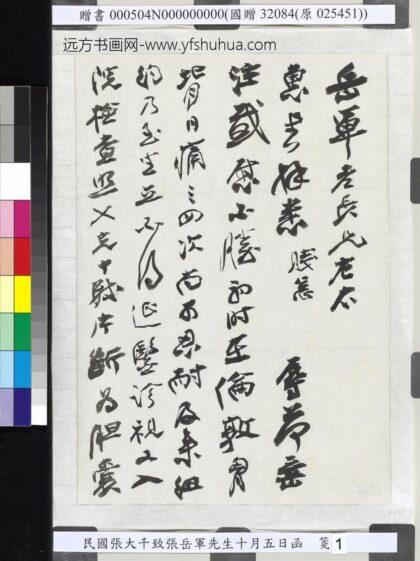 贈書 000504N000000000(國贈 32084(原 025451))
远方书画网-www.yfshuhua.com
岳軍老長兄左右
惠書拜悉 賤恙 辱荷垂
注感慰不勝初時在倫敦胃
背日痛三四次尚可忍耐及來紐
約乃至坐立不得延醫診視又入
院檢查照X光十幾片斷為胆囊
民國張大千致張岳軍先生十月五日函 箋1